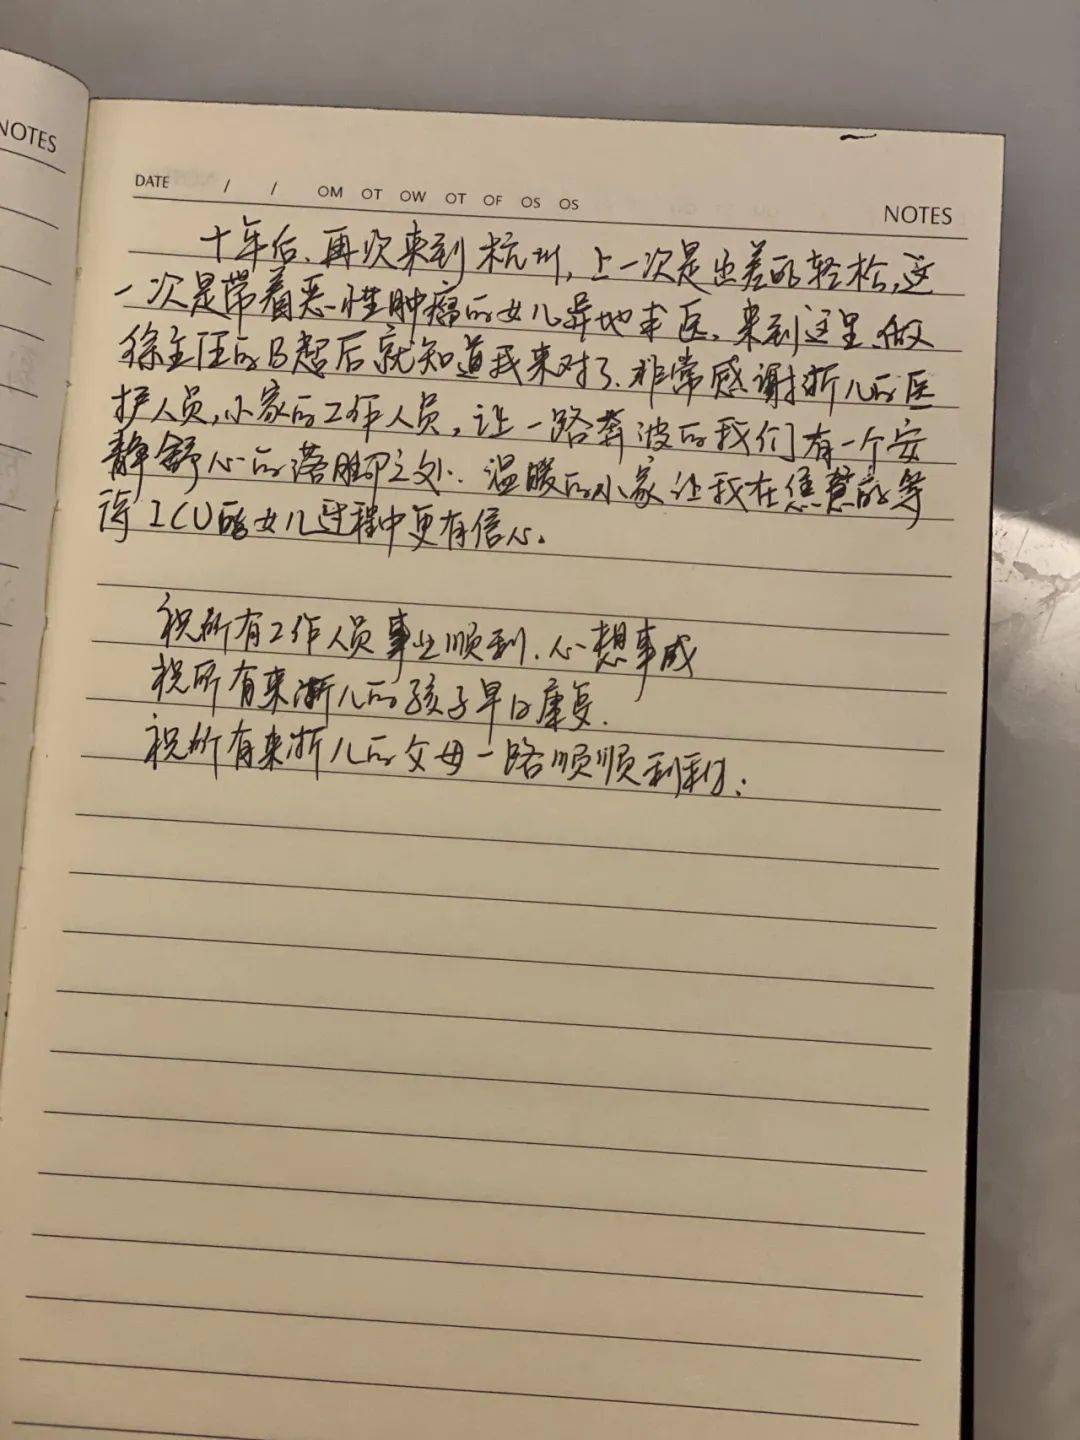 NOTES
DATE / / OM OT OW OT OF OS OS
NOTES
十年后、再次来到杭州,上一次是出差的轻松,这
一次是带着恶性肿瘤的女儿异地求医,来到这里,做
徐主任的B超后就知道我来对了、非常感谢浙儿的医
护人员,小家的工作人员,让一路奔波的我们有一个安
静舒心的落脚之处.温暖的小家让我在焦急的等
待ICU的女儿过程中更有信心.
祝所有工作人员事业顺利、心想事成
祝所有来浙儿的孩子早日康复.
祝所有来浙儿的父母一路顺顺利利;